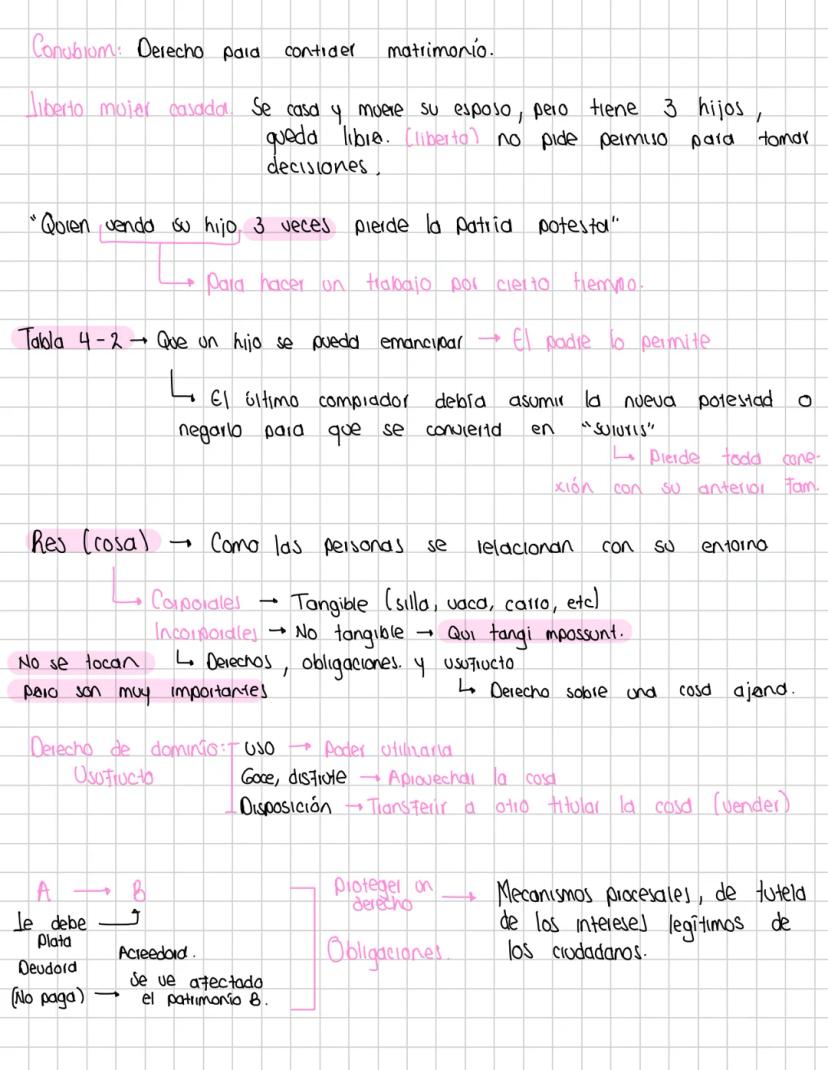 Conubium: Derecho para contraer matrimonio.
liberto mujer casada. Se casa y muere su esposo, pero tiene 3 hijos,
queda libre. (liberta) no pide permiso para tomar
decisiones.
"Quien venda su hijo 3 veces pierde la patria potesta"
Para hacer un trabajo por cierto tiempo.
Tabla 4-2 → Que un hijo se pueda emancipar → El padre lo permite
El último comprador debía asumir la nueva potestad o
negarlo para que se convierta en "suiuris"
Pierde toda cone-
xión con su anterior fam.
Res (cosa) → Como las personas se relacionan con su entorno
Corporales → Tangible (silla, vaca, carro, etc)
Incorporales → No tangible → Qui tangi mpossunt.
No se tocan Derechos, obligaciones. y usufructo
pero son muy importantes Derecho sobre una cosa ajena.
Derecho de dominio: uso → Poder utilizarla
Usufructo Goce, disfrute → Aprovechar la cosa
Disposición → Transferir a otro titular la cosa (vender)
A → B
le debe
Plata
Deudora Acreedora.
(No paga) → Se ve afectado
el patrimonio B.
Proteger un
derecho →
Obligaciones.
Mecanismos procesales, de tutela
de los intereses legítimos de
los ciudadanos.